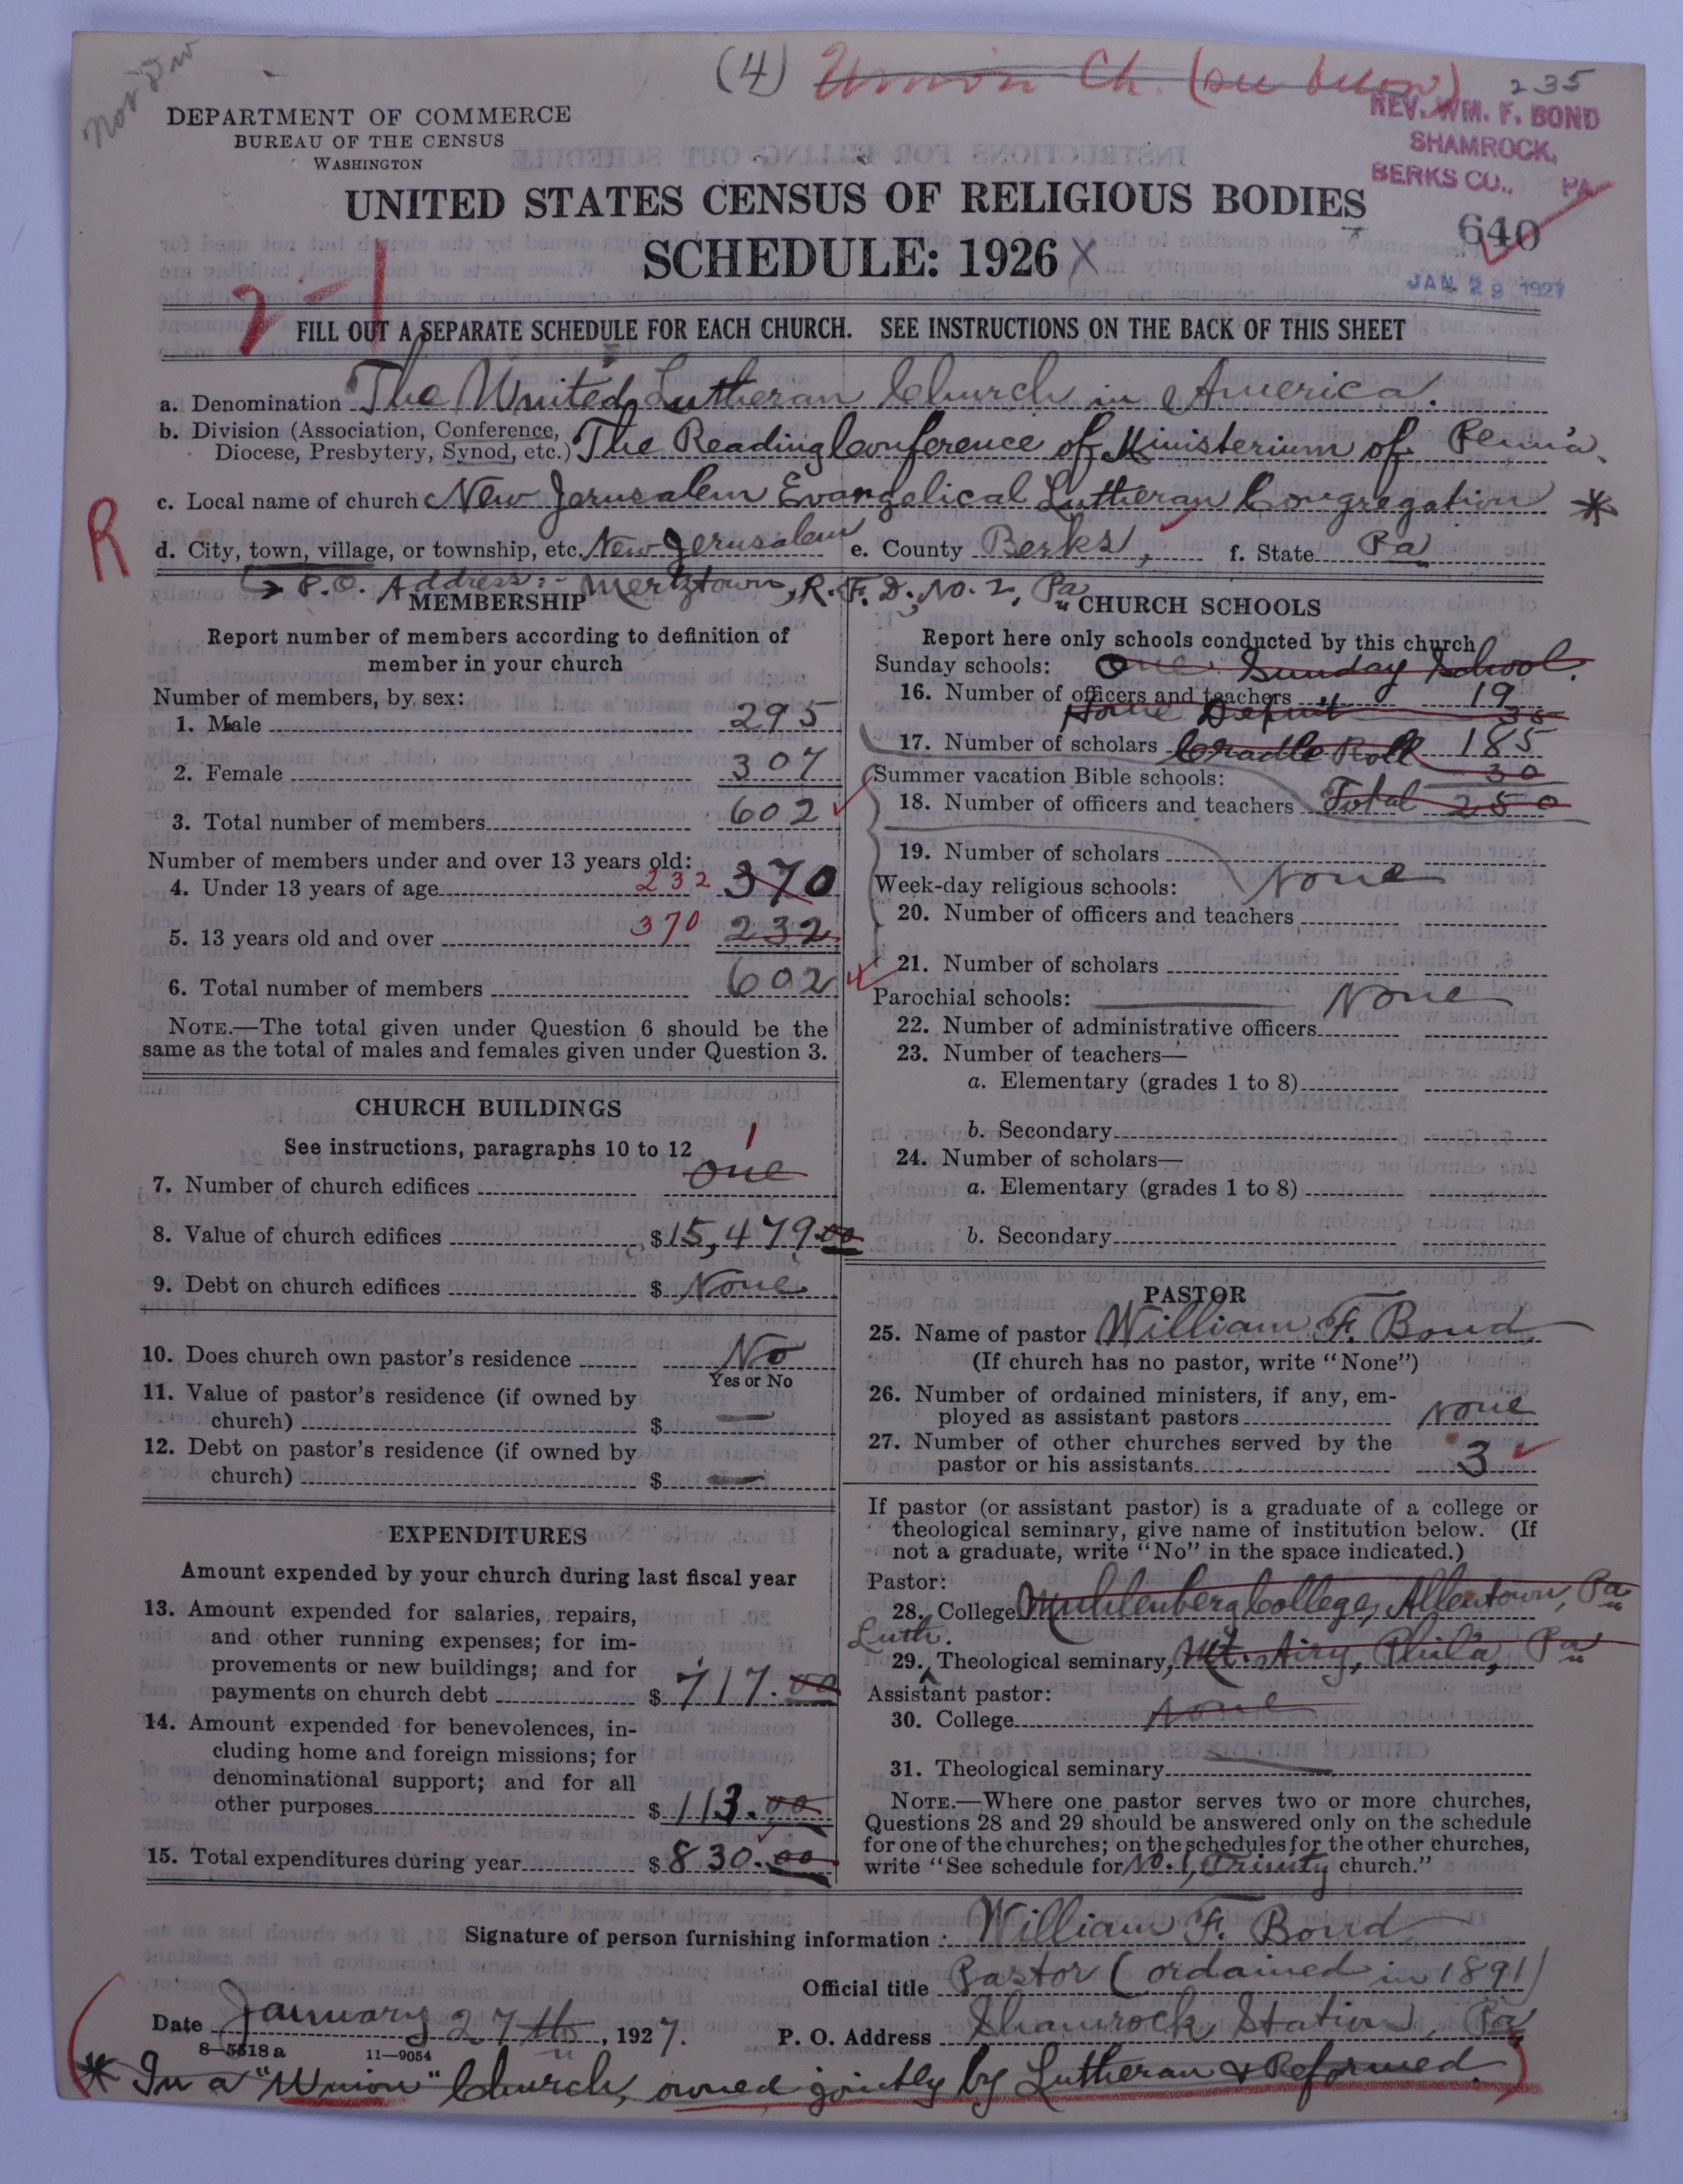 (4) Union Ch. (see below) 235
Nov Inv
REV. WM. F. BOND
SHAMROCK,
BERKS CO., PA
DEPARTMENT OF COMMERCE
BUREAU OF THE CENSUS
WASHINGTON
UNITED STATES CENSUS OF RELIGIOUS BODIES
640
SCHEDULE: 1926 X
JAN 29 1927
2-1
FILL OUT A SEPARATE SCHEDULE FOR EACH CHURCH. SEE INSTRUCTIONS ON THE BACK OF THIS SHEET
a. Denomination The United Lutheran Church in America.
b. Division (Association, Conference,
Diocese, Presbytery, Synod, etc.) The Reading Conference of Ministerium of Penn'a.
c. Local name of church New Jerusalem Evangelical Lutheran Congregation *
R
d. City, town, village, or township, etc. New Jerusalem e. County Berks, f. State Pa
P.O. Address:- Mertztown, R.F.D. No. 2, Pa
MEMBERSHIP
Report number of members according to definition of
member in your church
Number of members, by sex:
1. Male 295
2. Female 307
3. Total number of members 602
Number of members under and over 13 years old:
4. Under 13 years of age 232 370
5. 13 years old and over 370 232
6. Total number of members 602
NOTE.—The total given under Question 6 should be the
same as the total of males and females given under Question 3.
CHURCH BUILDINGS
See instructions, paragraphs 10 to 12
7. Number of church edifices 1 one
8. Value of church edifices $15,479.00
9. Debt on church edifices $ None
10. Does church own pastor's residence No
Yes or No
11. Value of pastor's residence (if owned by
church) $ —
12. Debt on pastor's residence (if owned by
church) $ —
EXPENDITURES
Amount expended by your church during last fiscal year
13. Amount expended for salaries, repairs,
and other running expenses; for im-
provements or new buildings; and for
payments on church debt $ 717.00
14. Amount expended for benevolences, in-
cluding home and foreign missions; for
denominational support; and for all
other purposes $ 113.00
15. Total expenditures during year $ 830.00
CHURCH SCHOOLS
Report here only schools conducted by this church
Sunday schools: One Sunday School.
16. Number of officers and teachers 19
Home Depmt 35
17. Number of scholars Cradle Roll 185
30
Summer vacation Bible schools:
18. Number of officers and teachers Total 250
19. Number of scholars
Week-day religious schools: None
20. Number of officers and teachers
21. Number of scholars
Parochial schools: None
22. Number of administrative officers
23. Number of teachers—
a. Elementary (grades 1 to 8)
b. Secondary
24. Number of scholars—
a. Elementary (grades 1 to 8)
b. Secondary
PASTOR
25. Name of pastor William F. Bond
(If church has no pastor, write "None")
26. Number of ordained ministers, if any, em-
ployed as assistant pastors None
27. Number of other churches served by the
pastor or his assistants 3
If pastor (or assistant pastor) is a graduate of a college or
theological seminary, give name of institution below. (If
not a graduate, write "No" in the space indicated.)
Pastor:
28. College Muhlenberg College, Allentown, Pa
Luth.
29. Theological seminary, Mt. Airy, Phila, Pa
Assistant pastor:
30. College None
31. Theological seminary
NOTE.—Where one pastor serves two or more churches,
Questions 28 and 29 should be answered only on the schedule
for one of the churches; on the schedules for the other churches,
write "See schedule for No. 1, Trinity church."
Signature of person furnishing information: William F. Bond
Official title Pastor (ordained in 1891)
Date January 27th, 1927. P. O. Address Shamrock Station, Pa
8-5518a 11-9054
* In a "Union" Church, owned jointly by Lutheran & Reformed.